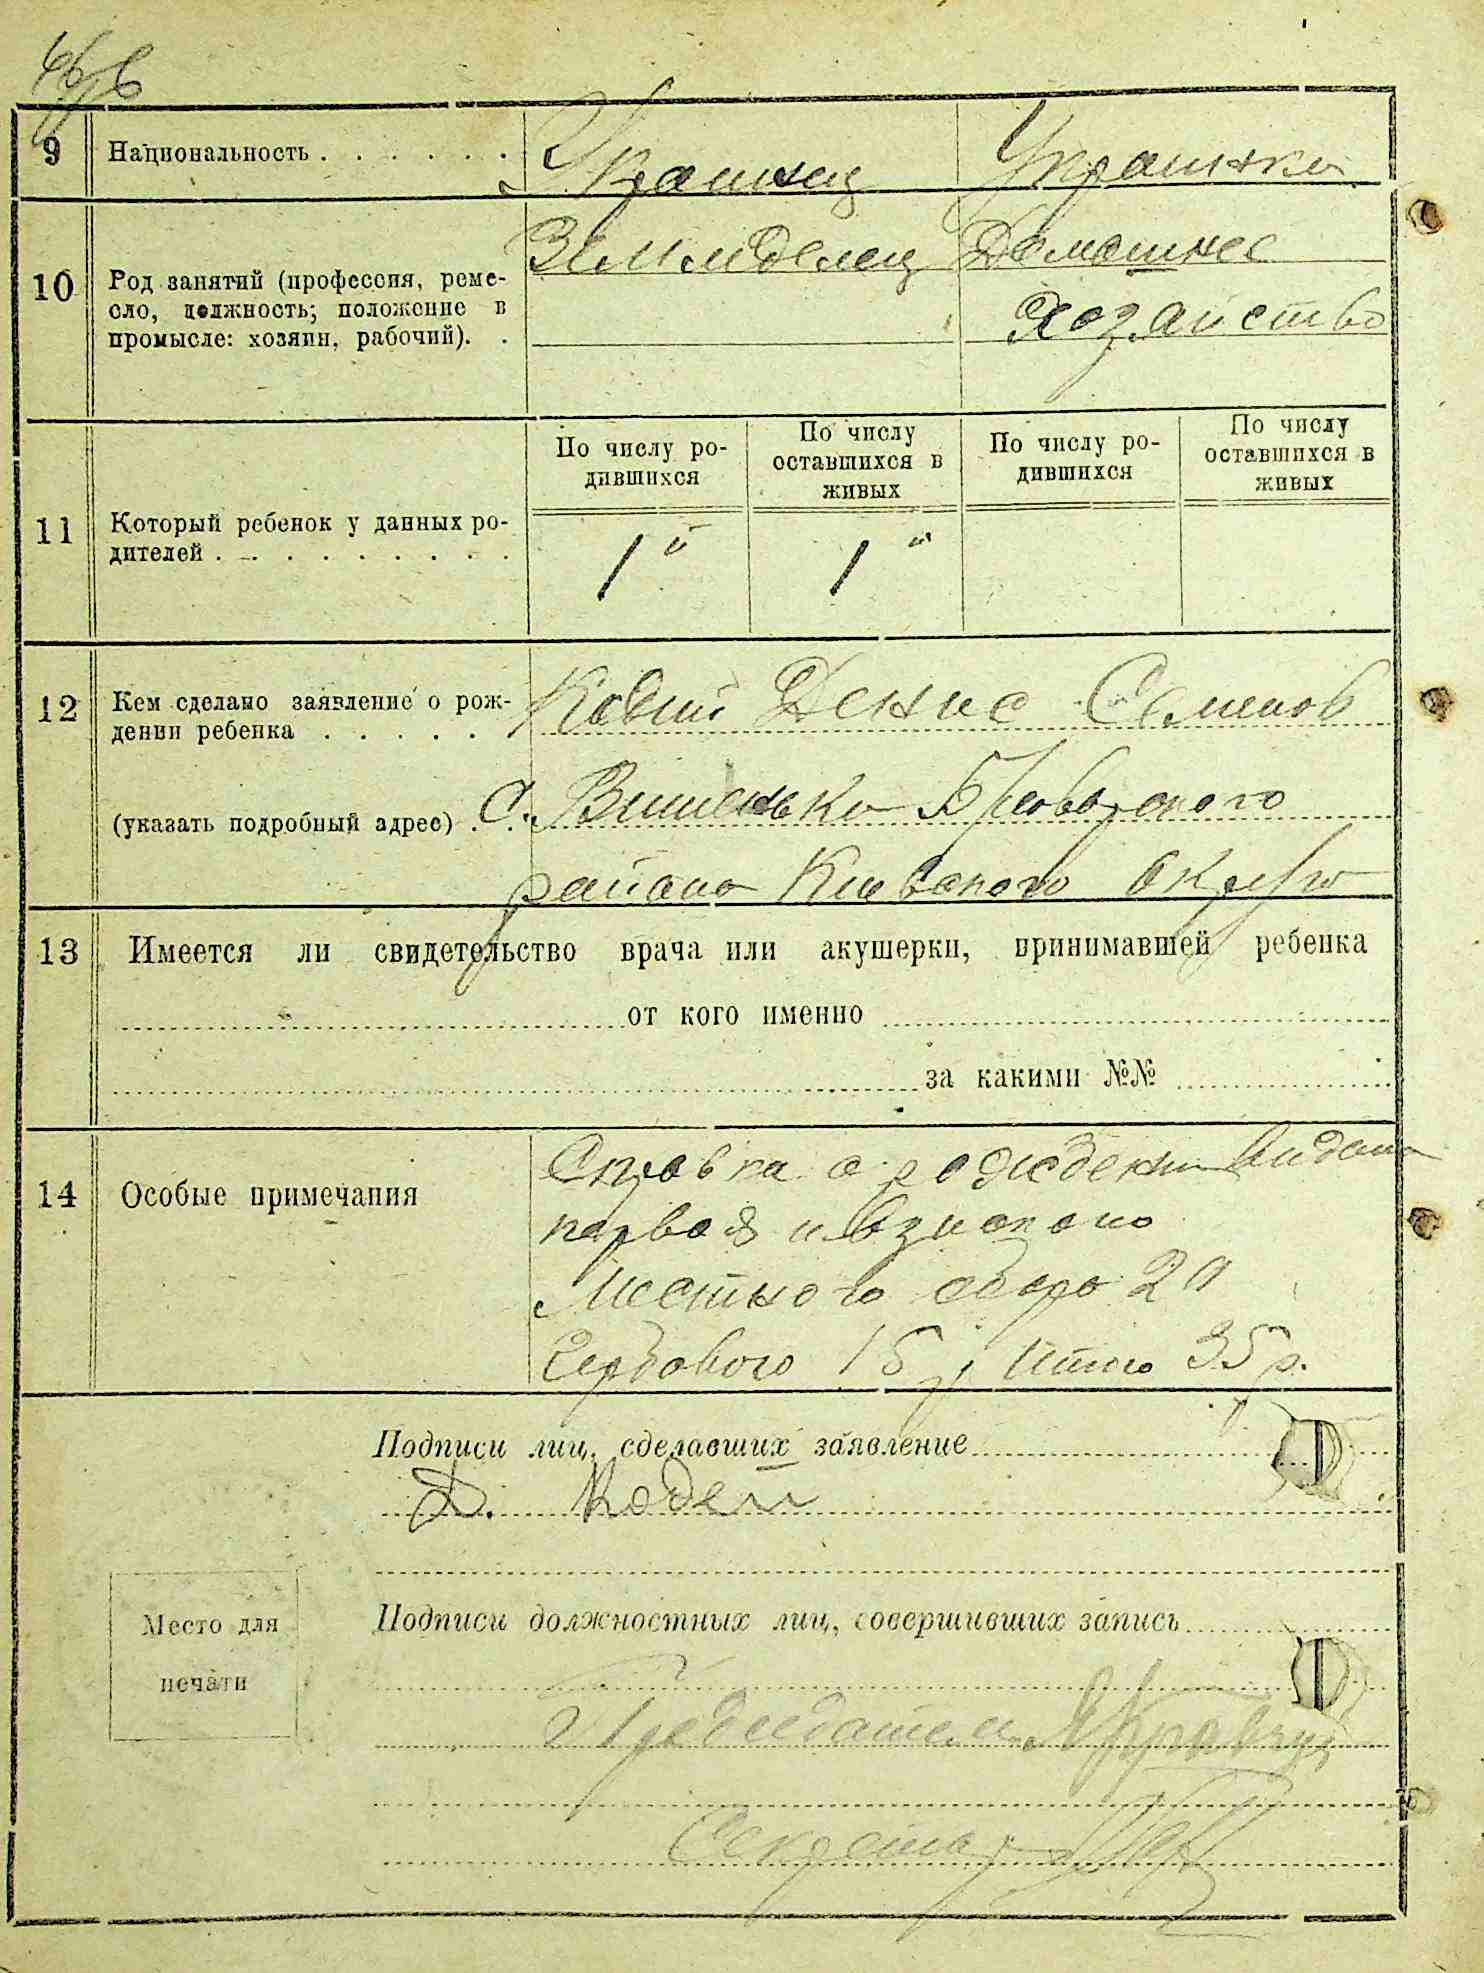 9 Национальность . . . . . . . Украинец Украинка
10 Род занятий (профессия, реме-
сло, должность; положение в
промысле: хозяин, рабочий). .
Земледелец Домашнее
Хозайство
11 Который ребенок у данных ро-
дителей . . . . . . . . . .
По числу ро-
дившихся
По числу
оставшихся в
живых
По числу ро-
дившихся
По числу
оставшихся в
живых
1й 1й
12 Кем сделано заявление о рож-
дении ребенка . . . . .
Денис Семенов
(указать подробный адрес) . . С. Вишеньки Броварского
района Киевского округа
13 Имеется ли свидетельство врача или акушерки, принимавшей ребенка
от кого именно
за какими №№
14 Особые примечания
Справка о рождении видана
первая и взискано
Местного сбора 20
Гербового 15 Итого 35 р.
Подписи лиц, сделавших заявление
Д.
Подписи должностных лиц, совершивших запись
Место для
печати
Председатель
Секретарь